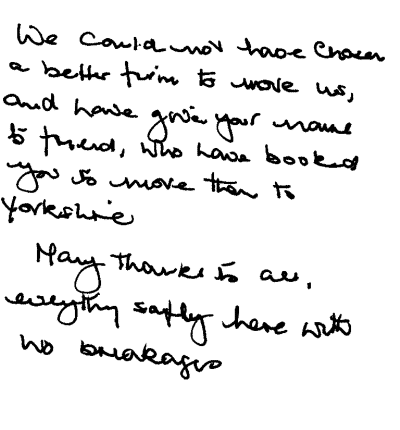 We could not have chosen
a better firm to move us,
and have given your name
to friend, who have booked
you to move them to
Yorkshire
Many thanks to all,
everything safely here with
no breakages